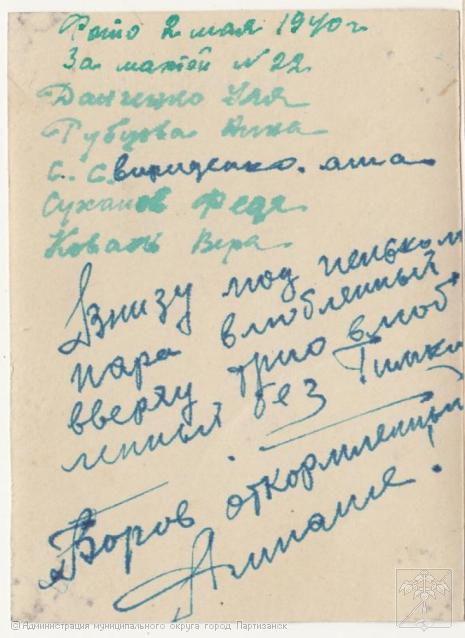 Фото 2 мая 1940 г
За махтой № 22
Данченко Уля
Губцова Анна
С. С. Свириденко. аша
Суханов Федя
Коваль Вера
Внизу под пеньком
пара влюбленный
вверху трио влюб
ленный без Тимки
Боров откормленный
Алпаше!
© Администрация муниципального округа город Партизанск